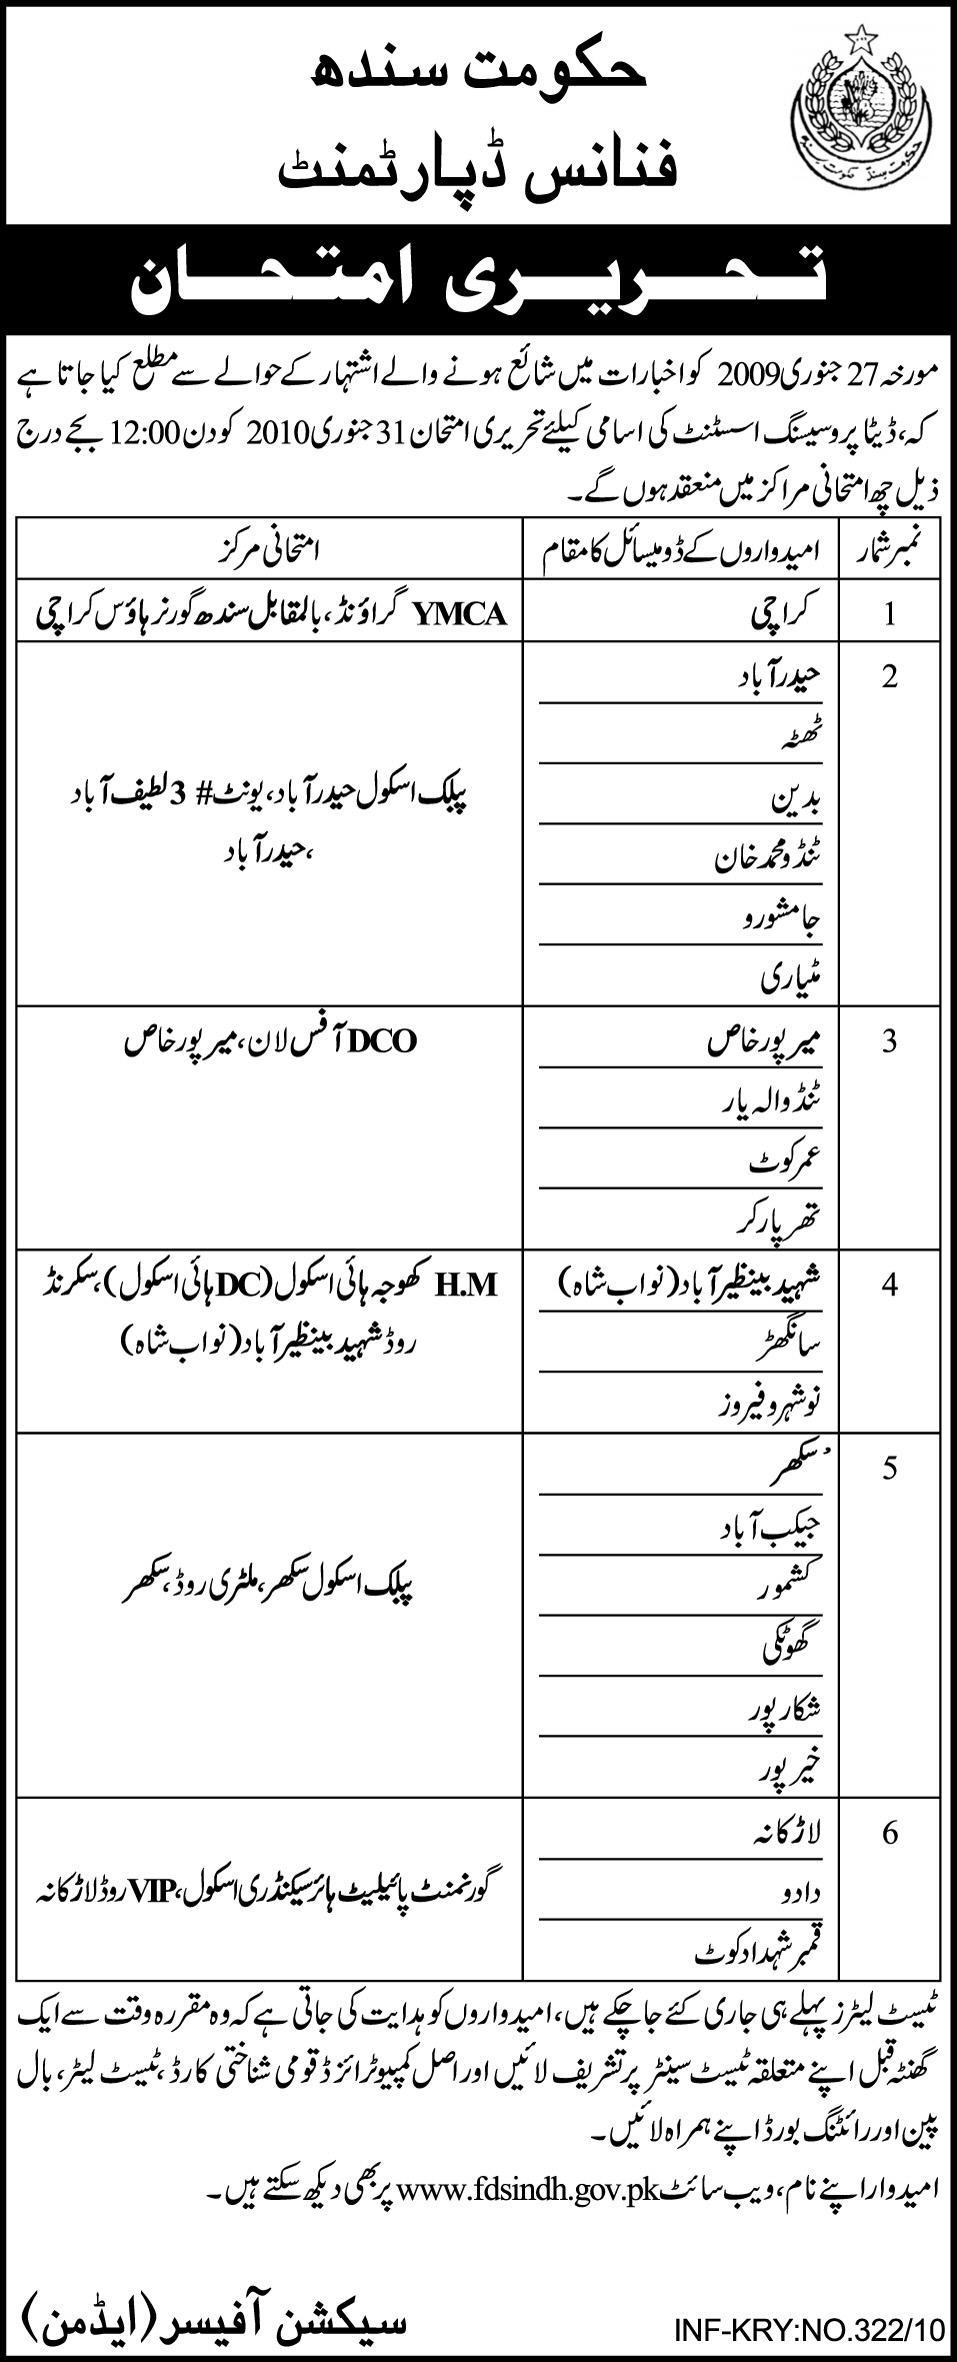 حکومت سندھ
فنانس ڈپارٹمنٹ
حکومت سندھ
تحریری امتحان
مورخہ 27 جنوری 2009 کو اخبارات میں شائع ہونے والے اشتہار کے حوالے سے مطلع کیا جاتا ہے
کہ، ڈیٹا پروسیسنگ اسسٹنٹ کی اسامی کیلئے تحریری امتحان 31 جنوری 2010 کو دن 12:00 بجے درج
ذیل چھ امتحانی مراکز میں منعقد ہوں گے۔
نمبر شمار امیدواروں کے ڈومیسائل کا مقام امتحانی مرکز
1 کراچی YMCA گراؤنڈ، بالمقابل سندھ گورنر ہاؤس کراچی
2 حیدرآباد
ٹھٹہ
بدین
ٹنڈو محمد خان
جامشورو
مٹیاری
پبلک اسکول حیدرآباد، یونٹ# 3 لطیف آباد
،حیدرآباد
3 میرپورخاص DCO آفس لان، میرپورخاص
ٹنڈوالہ یار
عمرکوٹ
تھرپارکر
4 شہید بینظیرآباد (نواب شاہ) H.M کھوجہ ہائی اسکول (DC ہائی اسکول)، سکرنڈ
سانگھڑ روڈ شہید بینظیرآباد (نواب شاہ)
نوشہروفیروز
5 سکھر
جیکب آباد
کشمور
گھوٹکی
شکارپور
خیرپور
پبلک اسکول سکھر، ملٹری روڈ، سکھر
6 لاڑکانہ
دادو
قمبر شہدادکوٹ
گورنمنٹ پائیلیٹ ہائر سیکنڈری اسکول، VIP روڈ لاڑکانہ
ٹیسٹ لیٹرز پہلے ہی جاری کئے جا چکے ہیں، امیدواروں کو ہدایت کی جاتی ہے کہ وہ مقررہ وقت سے ایک
گھنٹہ قبل اپنے متعلقہ ٹیسٹ سینٹر پر تشریف لائیں اور اصل کمپیوٹرائزڈ قومی شناختی کارڈ، ٹیسٹ لیٹر، بال
پین اور رائٹنگ بورڈ اپنے ہمراہ لائیں۔
امیدوار اپنے نام، ویب سائٹ www.fdsindh.gov.pk پر بھی دیکھ سکتے ہیں۔
سیکشن آفیسر (ایڈمن)
INF-KRY:NO.322/10